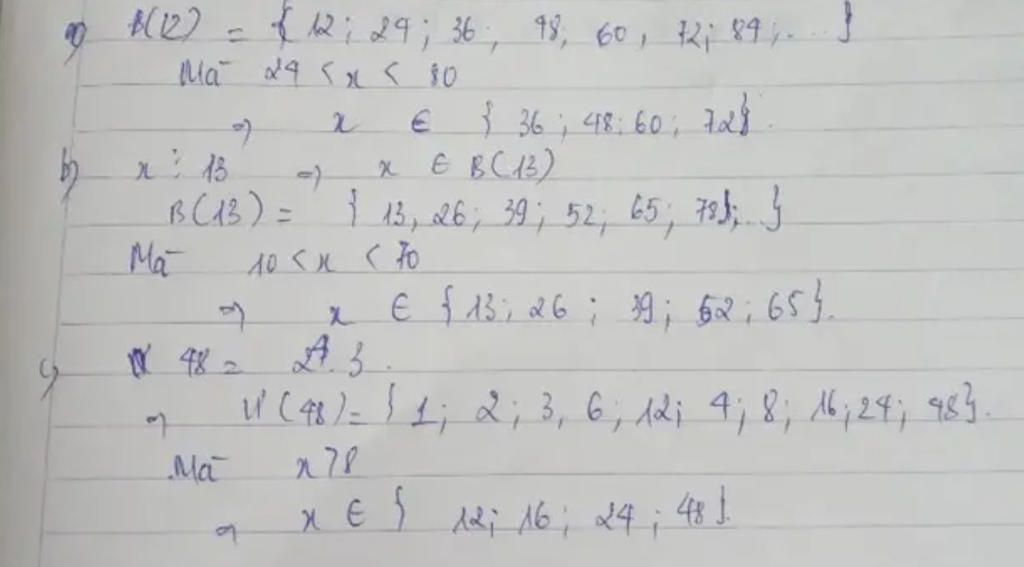 a) B(12) = { 12; 24; 36; 48; 60, 72; 84; ... }
Mà 24 < x < 80
=> x ∈ { 36; 48; 60; 72}.
b) x ⋮ 13 => x ∈ B(13)
B(13) = { 13, 26; 39; 52; 65; 78}; ...}
Mà 10 < x < 70
=> x ∈ {13; 26; 39; 52; 65}.
c) 48 = 2⁴. 3.
=> Ư(48) = {1; 2; 3, 6; 12; 4; 8; 16; 24; 48}.
Mà x > 8
=> x ∈ { 12; 16; 24; 48}.